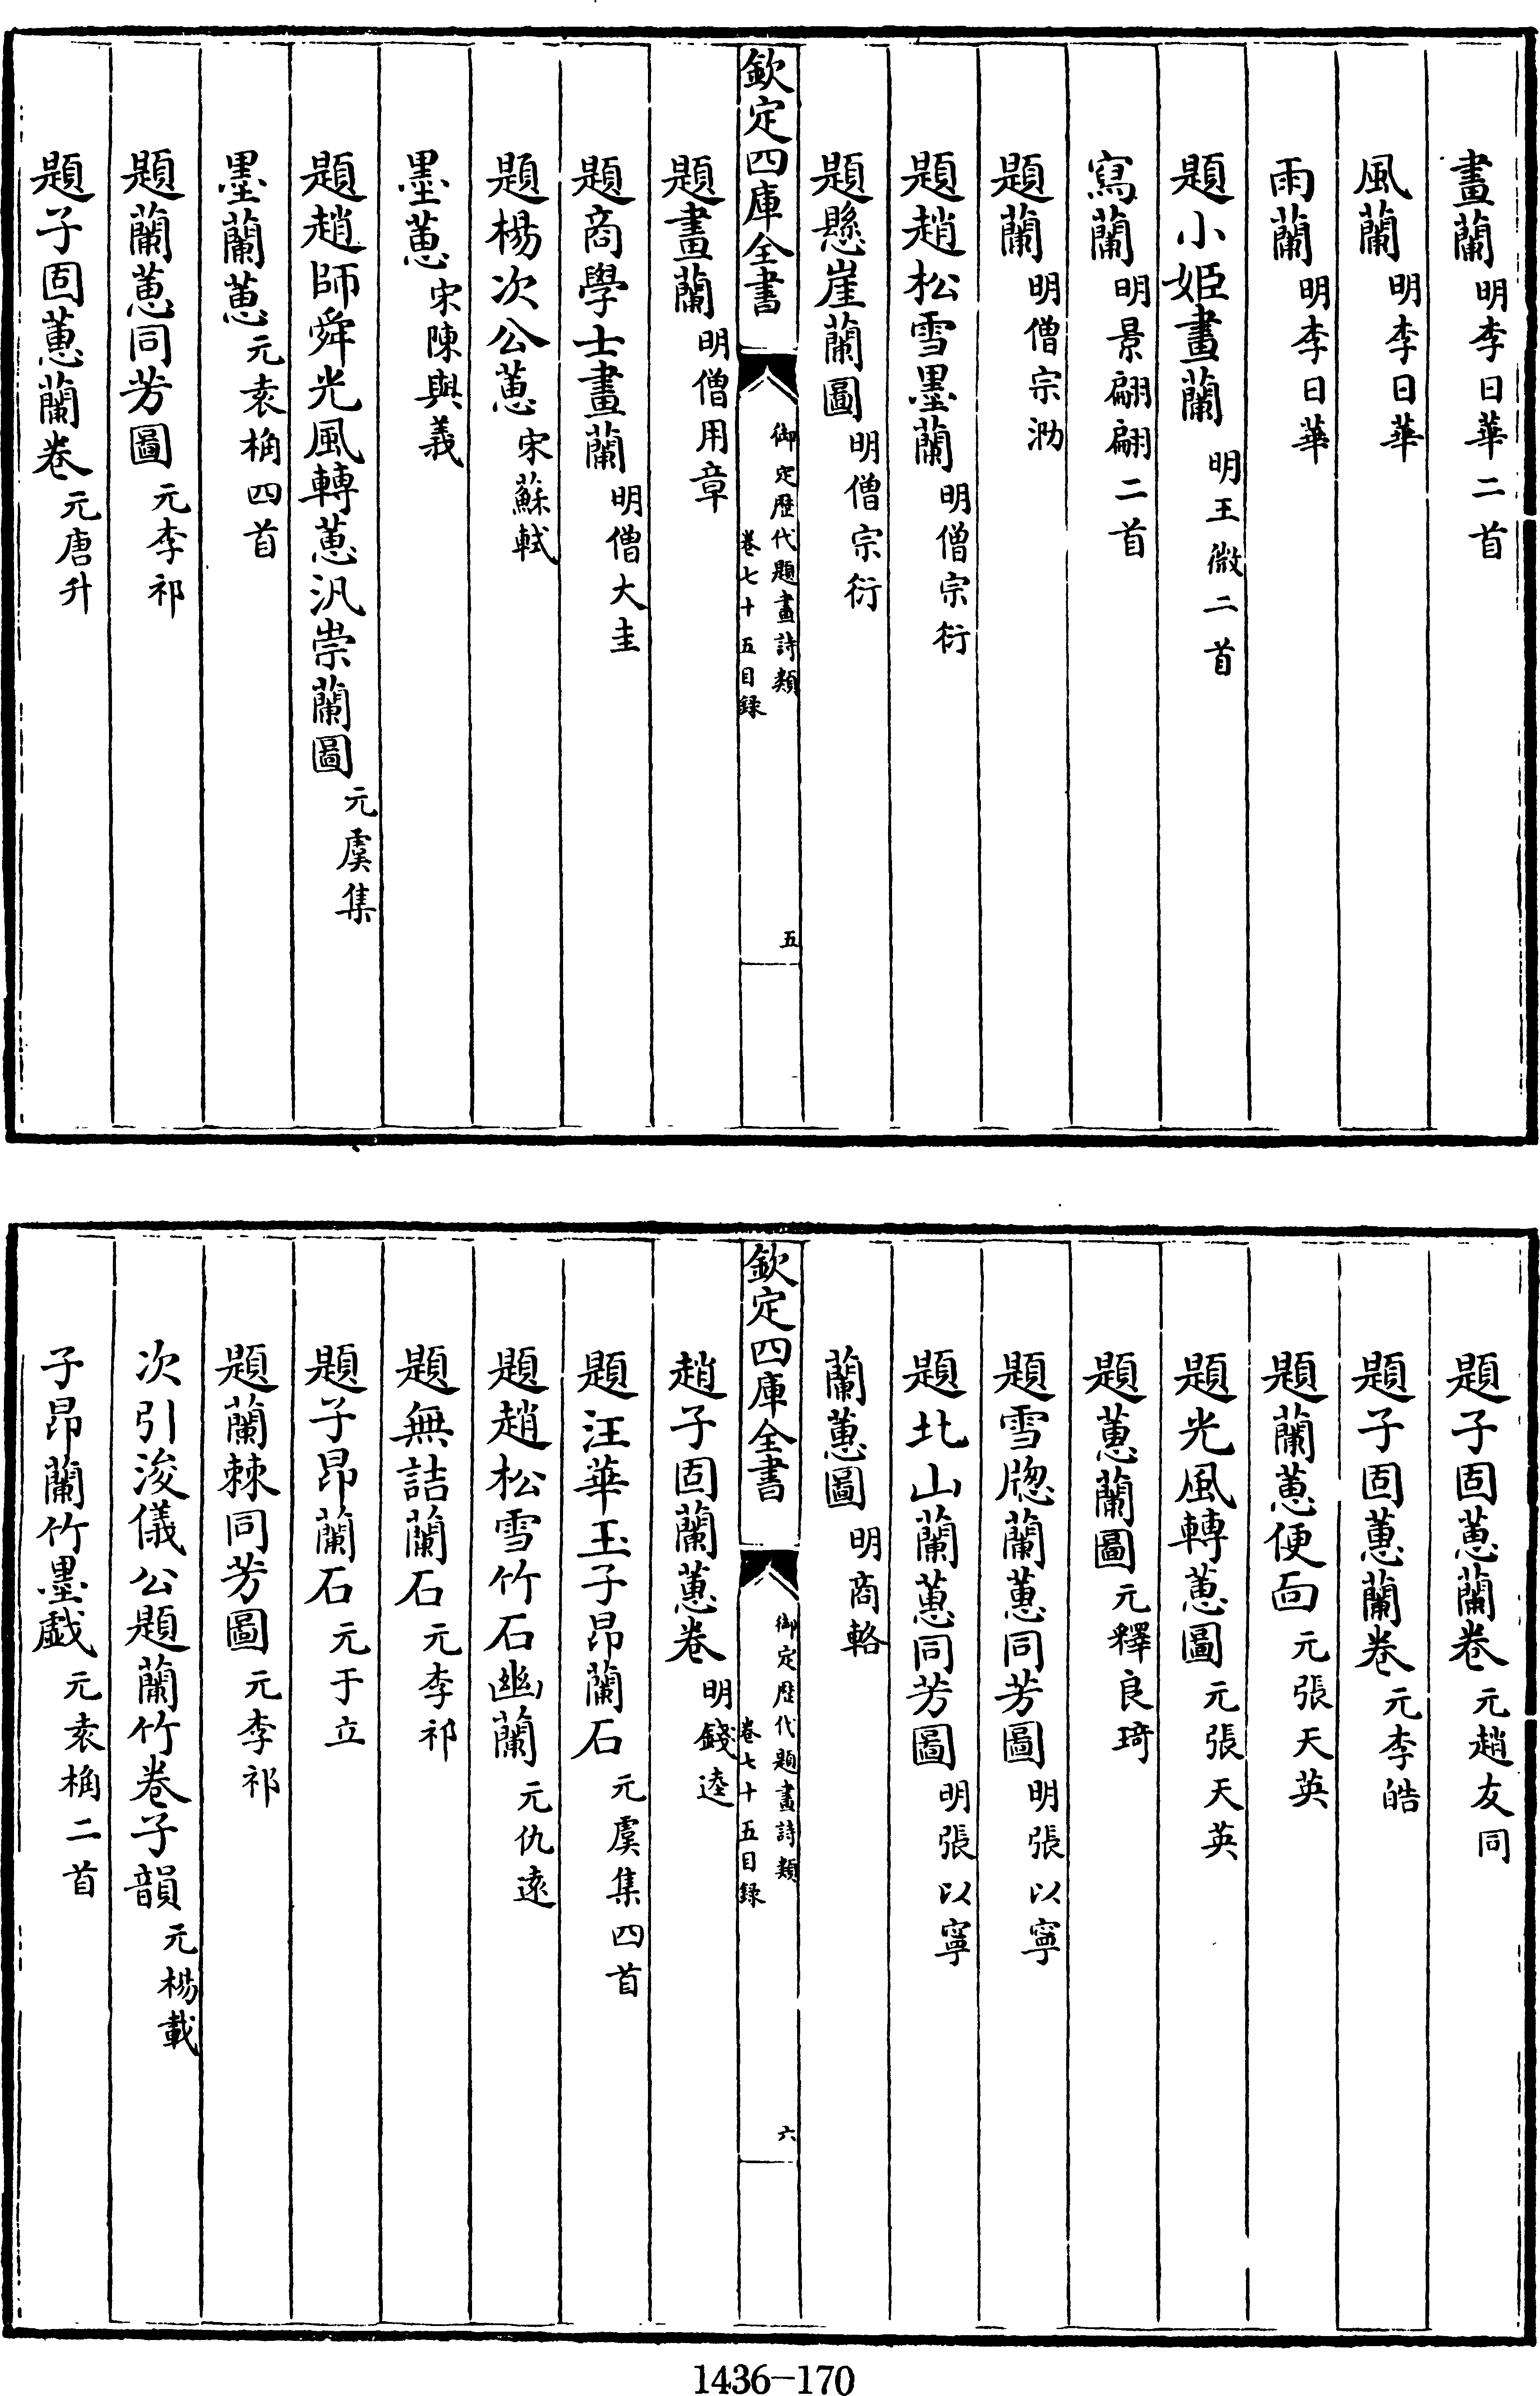 畫蘭明李日華二首
風蘭明李日華
雨蘭明李日華
題小姬畫蘭明王微二首
寫蘭明景翩翩二首
題蘭明僧宗泐
題趙松雪墨蘭明僧宗衍
題懸崖蘭圖明僧宗衍
欽定四庫全書
御定歴代題畫詩類
卷七十五目録
五
題畫蘭明僧用章
題商學士畫蘭明僧大圭
題楊次公蕙宋蘇軾
墨蕙宋陳與義
題趙師舜光風轉蕙汎崇蘭圖元虞集
墨蘭蕙元袁桷四首
題蘭蕙同芳圖元李祁
題子固蕙蘭卷元唐升
題子固蕙蘭卷元趙友同
題子固蕙蘭卷元李皓
題蘭蕙便面元張天英
題光風轉蕙圖元張天英
題蕙蘭圖元釋良琦
題雪牕蘭蕙同芳圖明張以寧
題北山蘭蕙同芳圖明張以寧
蘭蕙圖明商輅
欽定四庫全書
御定歴代題畫詩類
卷七十五目録
六
趙子固蘭蕙卷明錢逵
題汪華玉子昂蘭石元虞集四首
題趙松雪竹石幽蘭元仇遠
題無詰蘭石元李祁
題子昂蘭石元于立
題蘭棘同芳圖元李祁
次引浚儀公題蘭竹卷子韻元楊載
子昂蘭竹墨戯元袁桷二首
1436-170